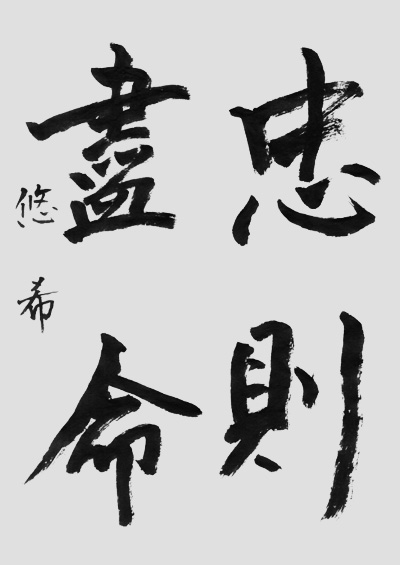 忠則
盡命
悠希